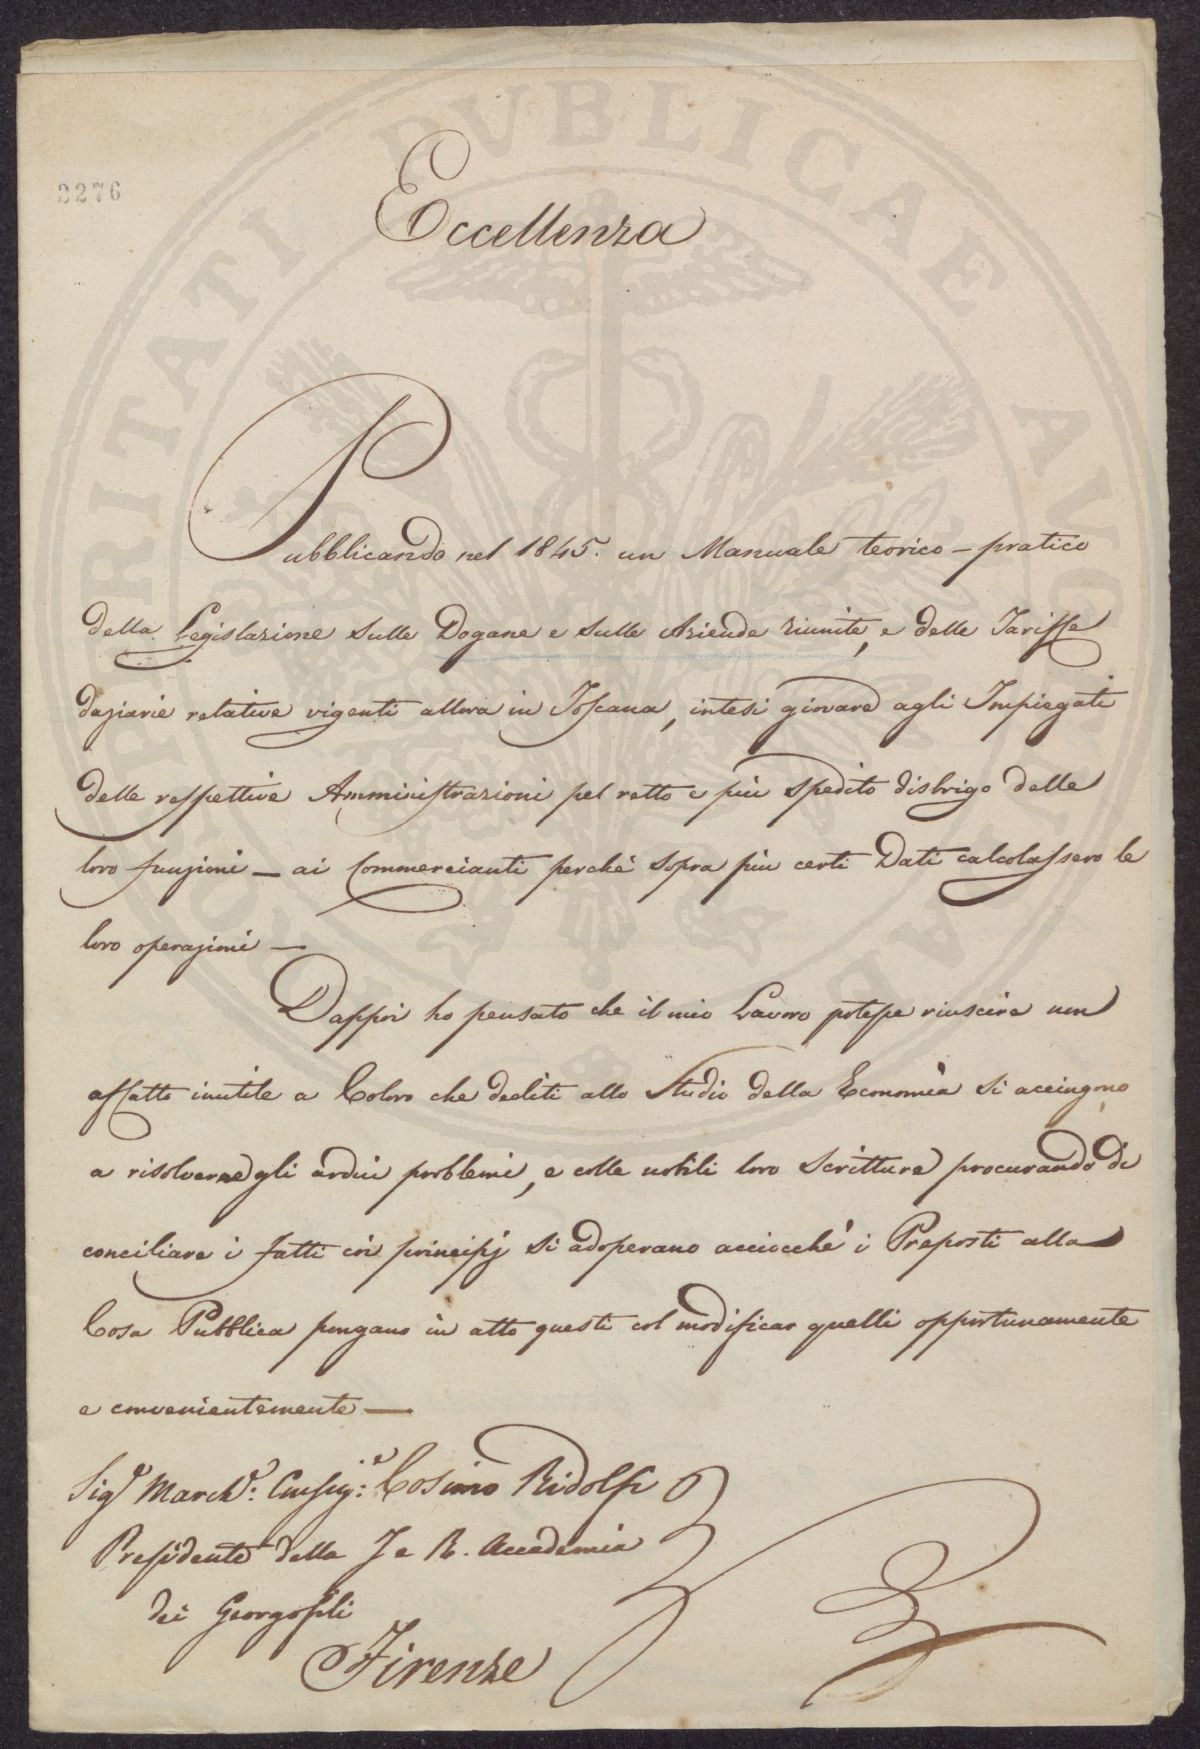 2276
Eccellenza
Pubblicando nel 1845. un Manuale teorico-pratico
della Legislazione sulle Dogane e sulle Aziende riunite, e delle Tariffe
daziarie relative vigenti allora in Toscana, intesi giovare agli Impiegati
delle respettive Amministrazioni pel retto e più spedito disbrigo delle
loro funzioni — ai Commercianti perchè sopra più certi Dati calcolassero le
loro operazioni —
Dappoi ho pensato che il mio Lavoro potesse riuscire non
affatto inutile a Coloro che dediti allo Studio della Economia si accingono
a risolverne gli ardui problemi, e colle nobili loro Scritture procurando di
conciliare i fatti coi principj si adoperano acciocchè i Preposti alla
Cosa Pubblica pongano in atto questi col modificar quelli opportunamente
e convenientemente —
Sigr March: Cosimo Ridolfi
Presidente della I e R. Accademia
dei Georgofili
Firenze
PVBLICAE